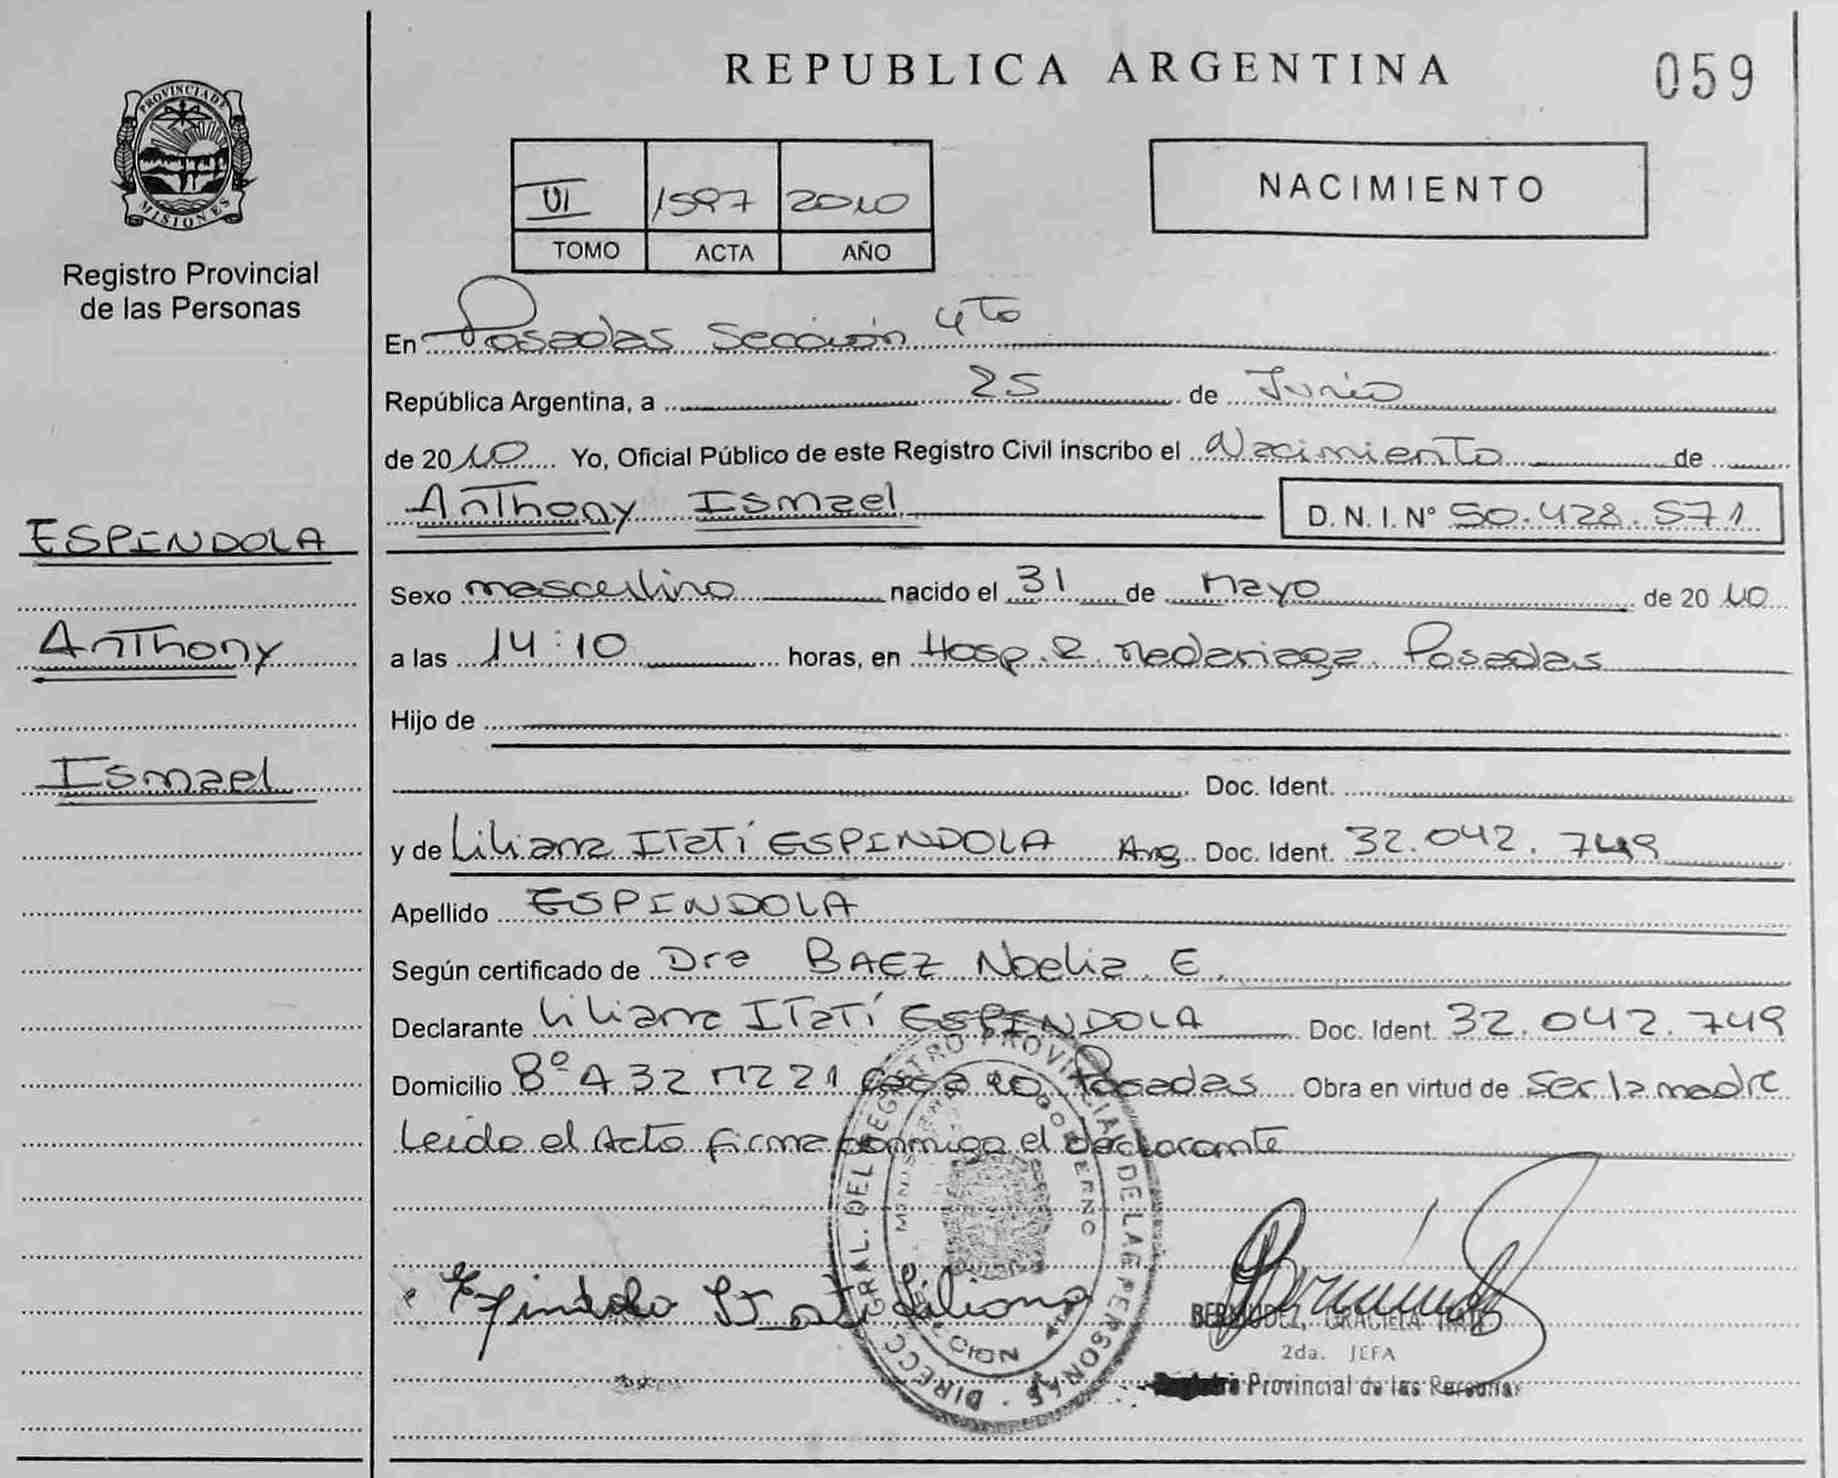 REPUBLICA ARGENTINA
059
PROVINCIA DE MISIONES
Registro Provincial
de las Personas
VI 1597 2010
TOMO ACTA AÑO
NACIMIENTO
En Posadas Sección 4to
República Argentina, a 25 de Junio
de 2010 Yo, Oficial Público de este Registro Civil inscribo el Nacimiento de
Anthony Ismael D. N. I. N° 50.428.571
ESPINDOLA
Anthony
Ismael
Sexo masculino nacido el 31 de Mayo de 2010
a las 14:10 horas, en Hosp. R. Madariaga. Posadas
Hijo de
Doc. Ident.
y de Liliana Itatí ESPINDOLA Arg. Doc. Ident. 32.042.749
Apellido ESPINDOLA
Según certificado de Dra BAEZ Noelia. E.
Declarante Liliana Itatí ESPINDOLA Doc. Ident. 32.042.749
Domicilio Bº A 32 Mz 21 Casa 20 Posadas Obra en virtud de ser la madre
Leida el Acta firma conmigo el declarante
Espindola Itati Liliana
DIRECC. GRAL. DEL REGISTRO PROVINCIAL DE LAS PERSONAS
MINISTERIO GOBIERNO
BERMUDEZ, GRACIELA
2da. JEFA
Registro Provincial de las Personas